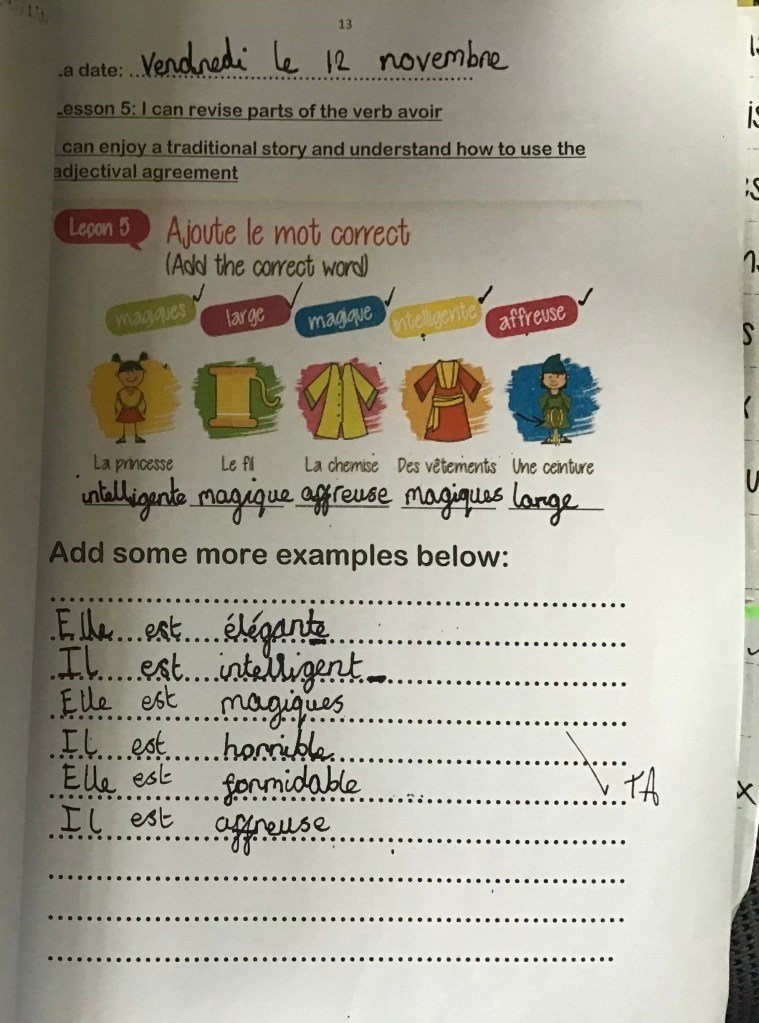 13
.a date: Vendredi le 12 novembre
Lesson 5: I can revise parts of the verb avoir
can enjoy a traditional story and understand how to use the
adjectival agreement
Leçon 5 Ajoute le mot correct
(Add the correct word)
magiques large magique intelligente affreuse
La princesse Le fil La chemise Des vêtements Une ceinture
intelligente magique affreuse magiques large
Add some more examples below:
Elle est élégante
Il est intelligent_
Elle est magiques
Il est horrible
Elle est formidable
TA
Il est affreuse